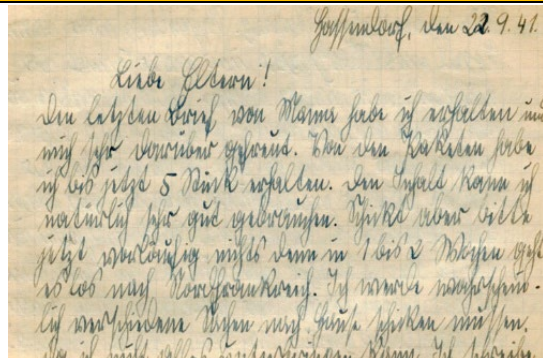 Hassendorf, den 22.9.41.
Liebe Eltern!
Den letzten Brief von Mama habe ich erhalten und
mich sehr darüber gefreut. Von den Paketen habe
ich bis jetzt 5 Stück erhalten. Den Inhalt kann ich
natürlich sehr gut gebrauchen. Schickt aber bitte
jetzt vorläufig nichts denn in 1 bis 2 Wochen geht
es los nach Nordfrankreich. Ich werde wahrschein-
lich verschiedene Sachen nach Hause schicken müssen.
Da ich nicht alles unterbringen kann. Ich schreibe